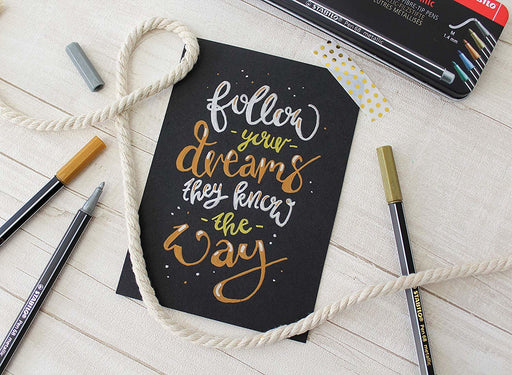 follow
- your -
dreams
they know
- the -
way
STABILO Pen 68 metallic
FIBRE-TIP PENS
M
1.4 mm
STABILO Pen 68 metallic
STABILO Pen 68 metallic